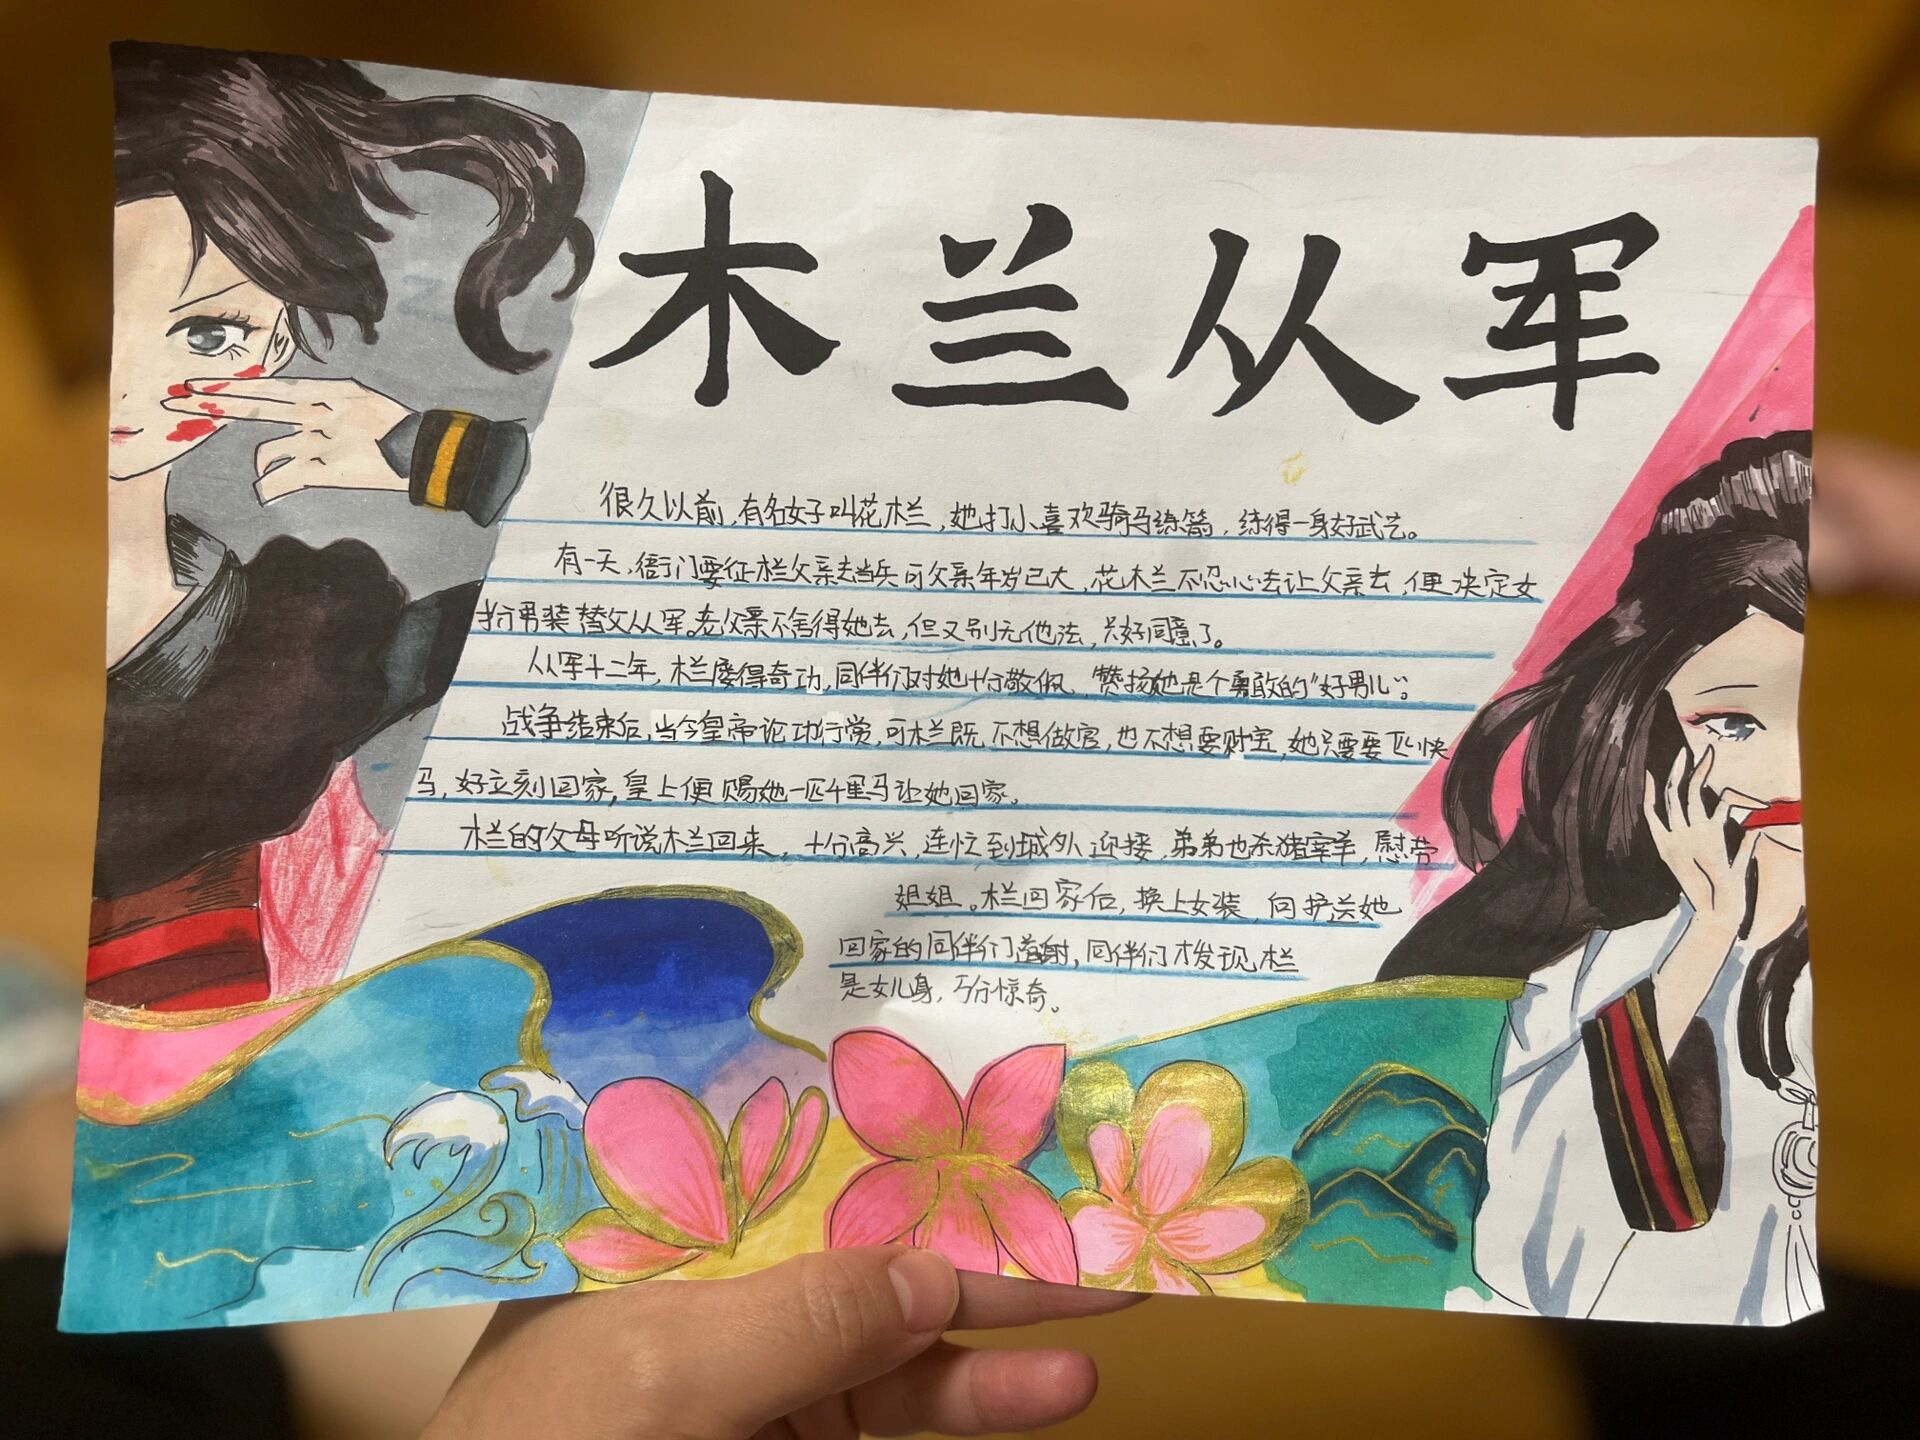 木兰从军
很久以前,有名女子叫花木兰,她打小喜欢骑马练箭,练得一身好武艺。
有一天,衙门要征木兰父亲去当兵可父亲年岁已大,花木兰不忍心去让父亲去,便决定女
扮男装替父从军。老父亲不舍得她去,但又别无他法,只好同意了。
从军十二年,木兰屡得奇功,同伴们对她十分敬佩,赞扬她是个勇敢的"好男儿"。
战争结束后,当今皇帝论功行赏,可木兰既不想做官,也不想要财宝,她只要要飞快
马,好立刻回家,皇上便赐她一匹千里马让她回家。
木兰的父母听说木兰回来,十分高兴,连忙到城外迎接,弟弟也杀猪宰羊,慰劳
姐姐。木兰回家后,换上女装,向护送她
回家的同伴们道谢,同伴们才发现木兰
是女儿身,万分惊奇。